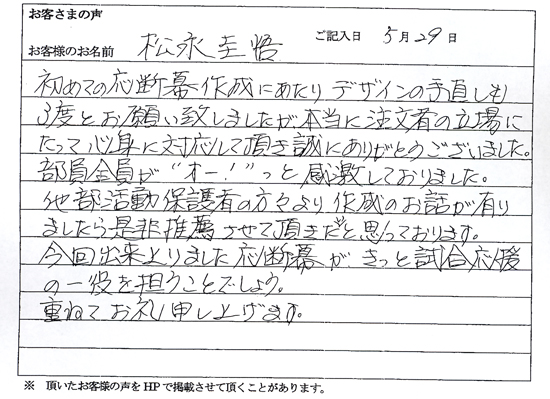 お客さまの声
お客様のお名前 松永圭悟 ご記入日 5月29日
初めての応断幕作成にあたりデザインの手直しも
3度とお願い致しましたが本当に注文者の立場に
たって心身に対応して頂き誠にありがとうございました。
部員全員が"オー!"っと感激しておりました。
他部活動保護者の方々より作成のお話が有り
ましたら是非推薦させて頂きだと思っております。
今回出来上りました応断幕がきっと試合応援
の一役を担うことでしょう。
重ねてお礼申し上げます。
※ 頂いたお客様の声をHPで掲載させて頂くことがあります。